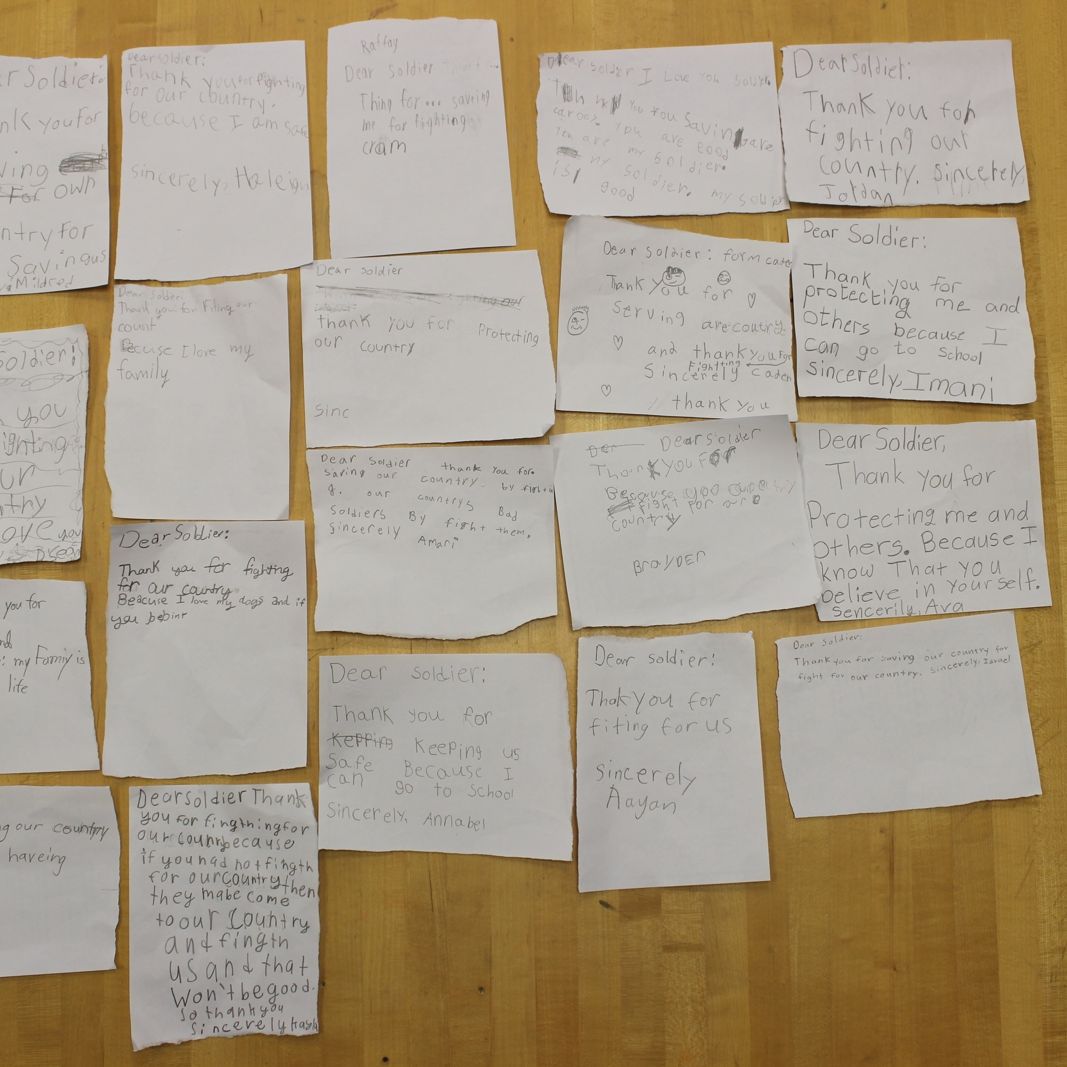 r Soldier:
nk you for
ving
For own
ntry for
Savingus
Mildred
oldier:
you
ighting
ur
thy
ove you
you for
nd
: my Famiy is
life
g our country
haveing
Dear soldier:
Thank you for fighting
for our country.
because I am safe
sincerely, Haleigh
Dear soldier:
Thank you for fiting our
count
Becuse I love my
family
Dear Soldier:
Thank you for fighting
for our country
Beacuse I love my dogs and if
you
Dear soldier Thank
you for fingthing for
our counrbecause
if you had not fingth
for our country then
they mabe come
to our Country
and fingth
us and that
Won't be good.
so thank you
Sincerely
Raffay
Dear Soldier
Thing for... saveing
me for fighting
cram
Dear soldier
thank you for Protecting
our country
Sinc
Dear Soldier thank you for
Saving our country. by fight
g. our countrys Bad
Soldiers By fight them.
Sincerely
Amari
Dear soldier:
Thank you for
Kepping Keeping us
Safe Because I
can go to School
Sincerely, Annabel
Dear soldier I Love you
you Saving
you are good
You are my Soldier.
my soldier. my
is good
Dear soldier: form caden
Thank you for
Serving are country
and thank you for
Fighting
Sincerely caden
thank you
Dear Soldier
Thank you For
Because you
fight For our
country
BRAYDEN
Dear soldier:
Thak you for
fiting for us
sincerely
Aayan
Dear Soldier:
Thank you for
fighting out
country. sincerely
Jordan
Dear Soldier:
Thank you for
protecting me and
others because I
can go to school
sincerely, Imani
Dear Soldier,
Thank you for
Protecting me and
others. Because I
know That you
believe in yourself.
sencerily, Ava
Dear Soldier:
Thank you for saving our country for
fight for our country. Sincerely, Israel